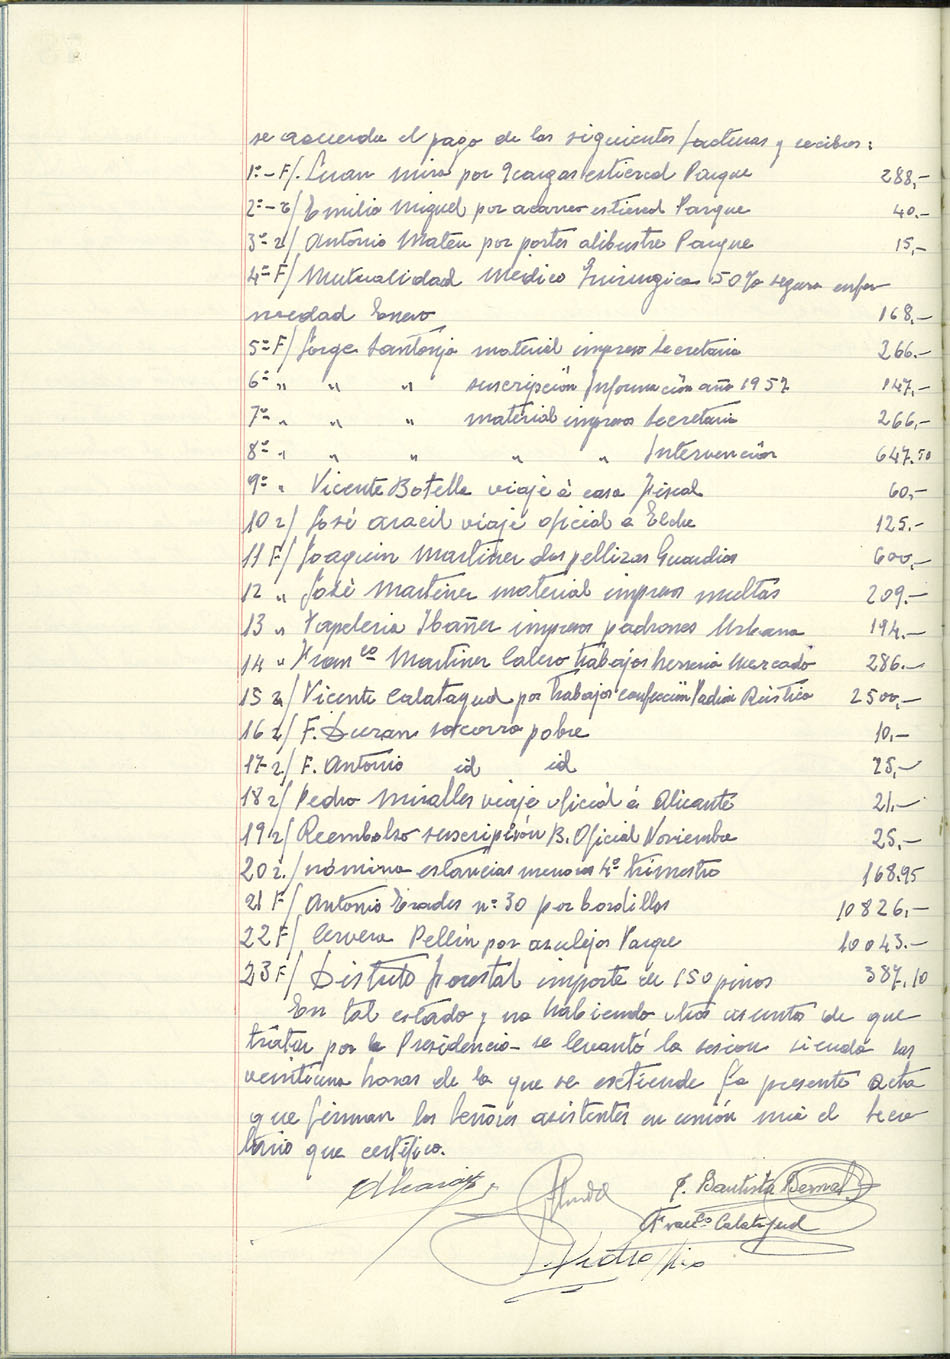 se acuerda el pago de los siguientes facturas y recibos:
1º-F/. Juan Mira por 9 cargas estiercol Parque 288,-
2º-r/ Emilio Miguel por acarreo estiercol Parque 40.-
3º r/ Antonio Mateu por portes alibustre Parque 15,-
4º F/ Mutualidad Médico Quirurgica 50% seguro enfer
medad Enero 168.-
5º F/ Jorge Santonja material impreso Secretaria 266.-
6º " " " suscripción Información año 1957 147,-
7º " " " material impresos Secretaria 266,-
8º " " " " " Intervención 647.50
9º " Vicente Botella viaje á casa Fiscal 60,-
10 r/ José Aracil viaje oficial a Elche 125.-
11 F/ Joaquin Martinez dos pellizas Guardias 600,-
12 " José Martinez material impresos multas 209.-
13 " Papeleria Ibañez impresos padrones Urbana 194.-
14 " Franco Martinez Calero trabajos herreria Mercado 286.-
15 r/ Vicente Calatayud por trabajos confección Padron Rústica 2500,-
16 r/ F. Duran socorro pobre 10,-
17 r/ F. Antonio id id 25,-
18 r/ Pedro Miralles viaje oficial á Alicante 21,-
19 r/ Reembolso suscripción B. Oficial Noviembre 25,-
20 r./ nómina estancias menores 4º trimestre 168.95
21 F/ Antonio nº 30 por bordillos 10826,-
22 F/ Cervera Pellín por azulejos Parque 10043.-
23 F/ Distrito forestal importe de 150 pinos 387,10
En tal estado y no habiendo otros asuntos de que
tratar por la Presidencia se levantó la sesion siendo las
veintiuna horas de la que se extiende la presente acta
que firman los Señores asistentes en unión mia el Secre
tario que certifico.
J. Bautista Bernal
Franco Calatayud